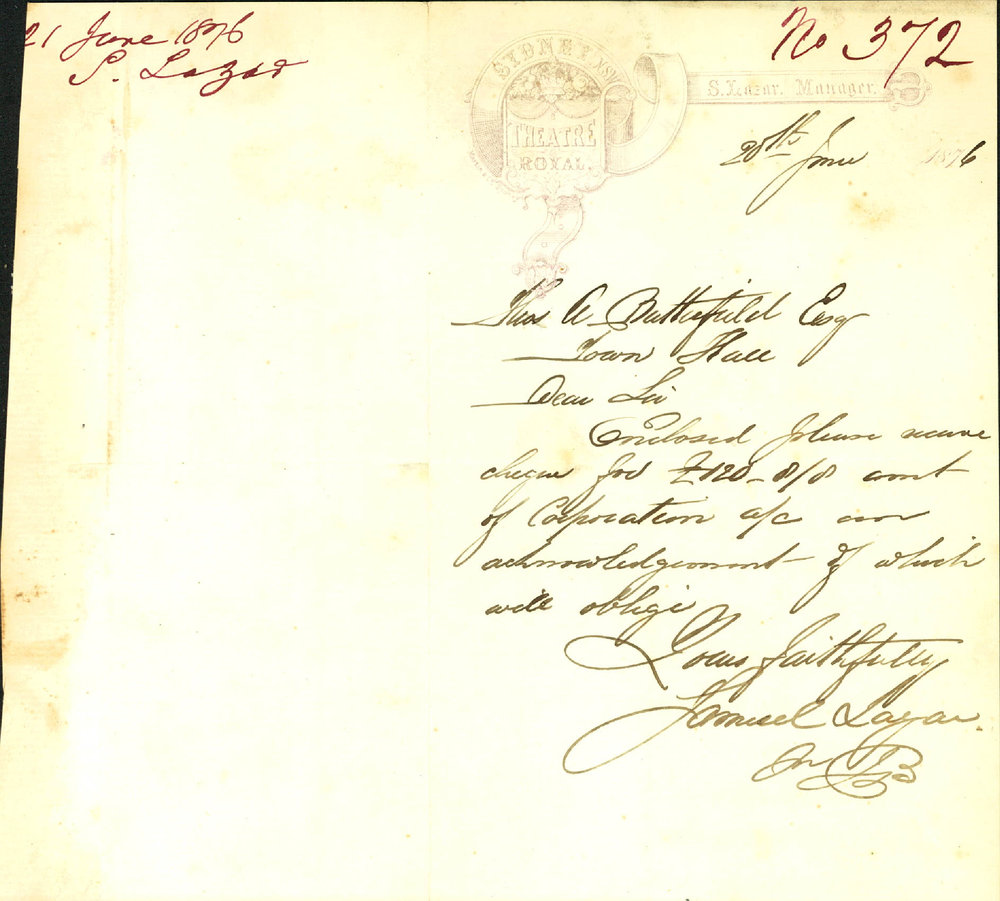 21 June 1876
S. Lazar
No 372
SYDNEY, NSW
THEATRE
ROYAL
S. Lazar. Manager.
20th June 1876
Thos A Butterfield Esq
Town Hall
Dear Sir
Enclosed please receive
cheque for £120-8/8 amt
of Corporation a/c an
acknowledgement of which
will oblige
Yours faithfully
Samuel Lazar